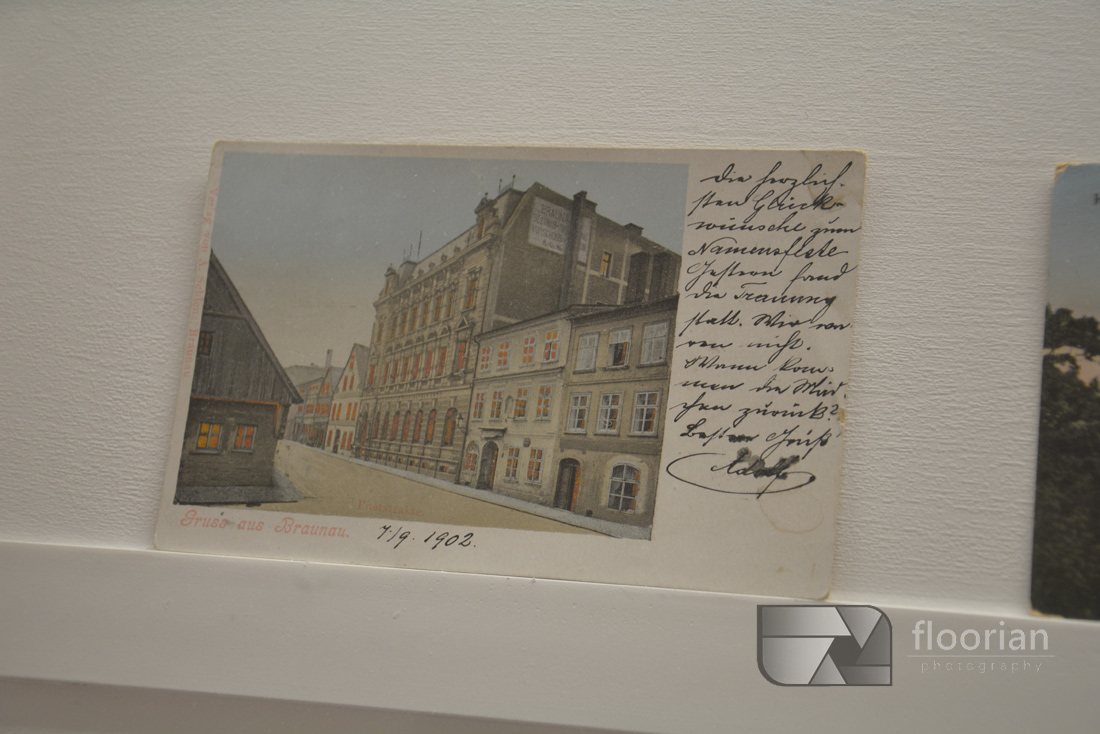 Die herzlich-
sten Glück-
wünsche zum
Namensfeste
Gestern fand
die Trauung
statt. Wir wa-
ren nicht.
Wann kom-
men die Mäd-
chen zurück?
Besten Gruß
Adolf
Poststrasse.
Gruss aus Braunau.
7./9. 1902.
floorian
photography